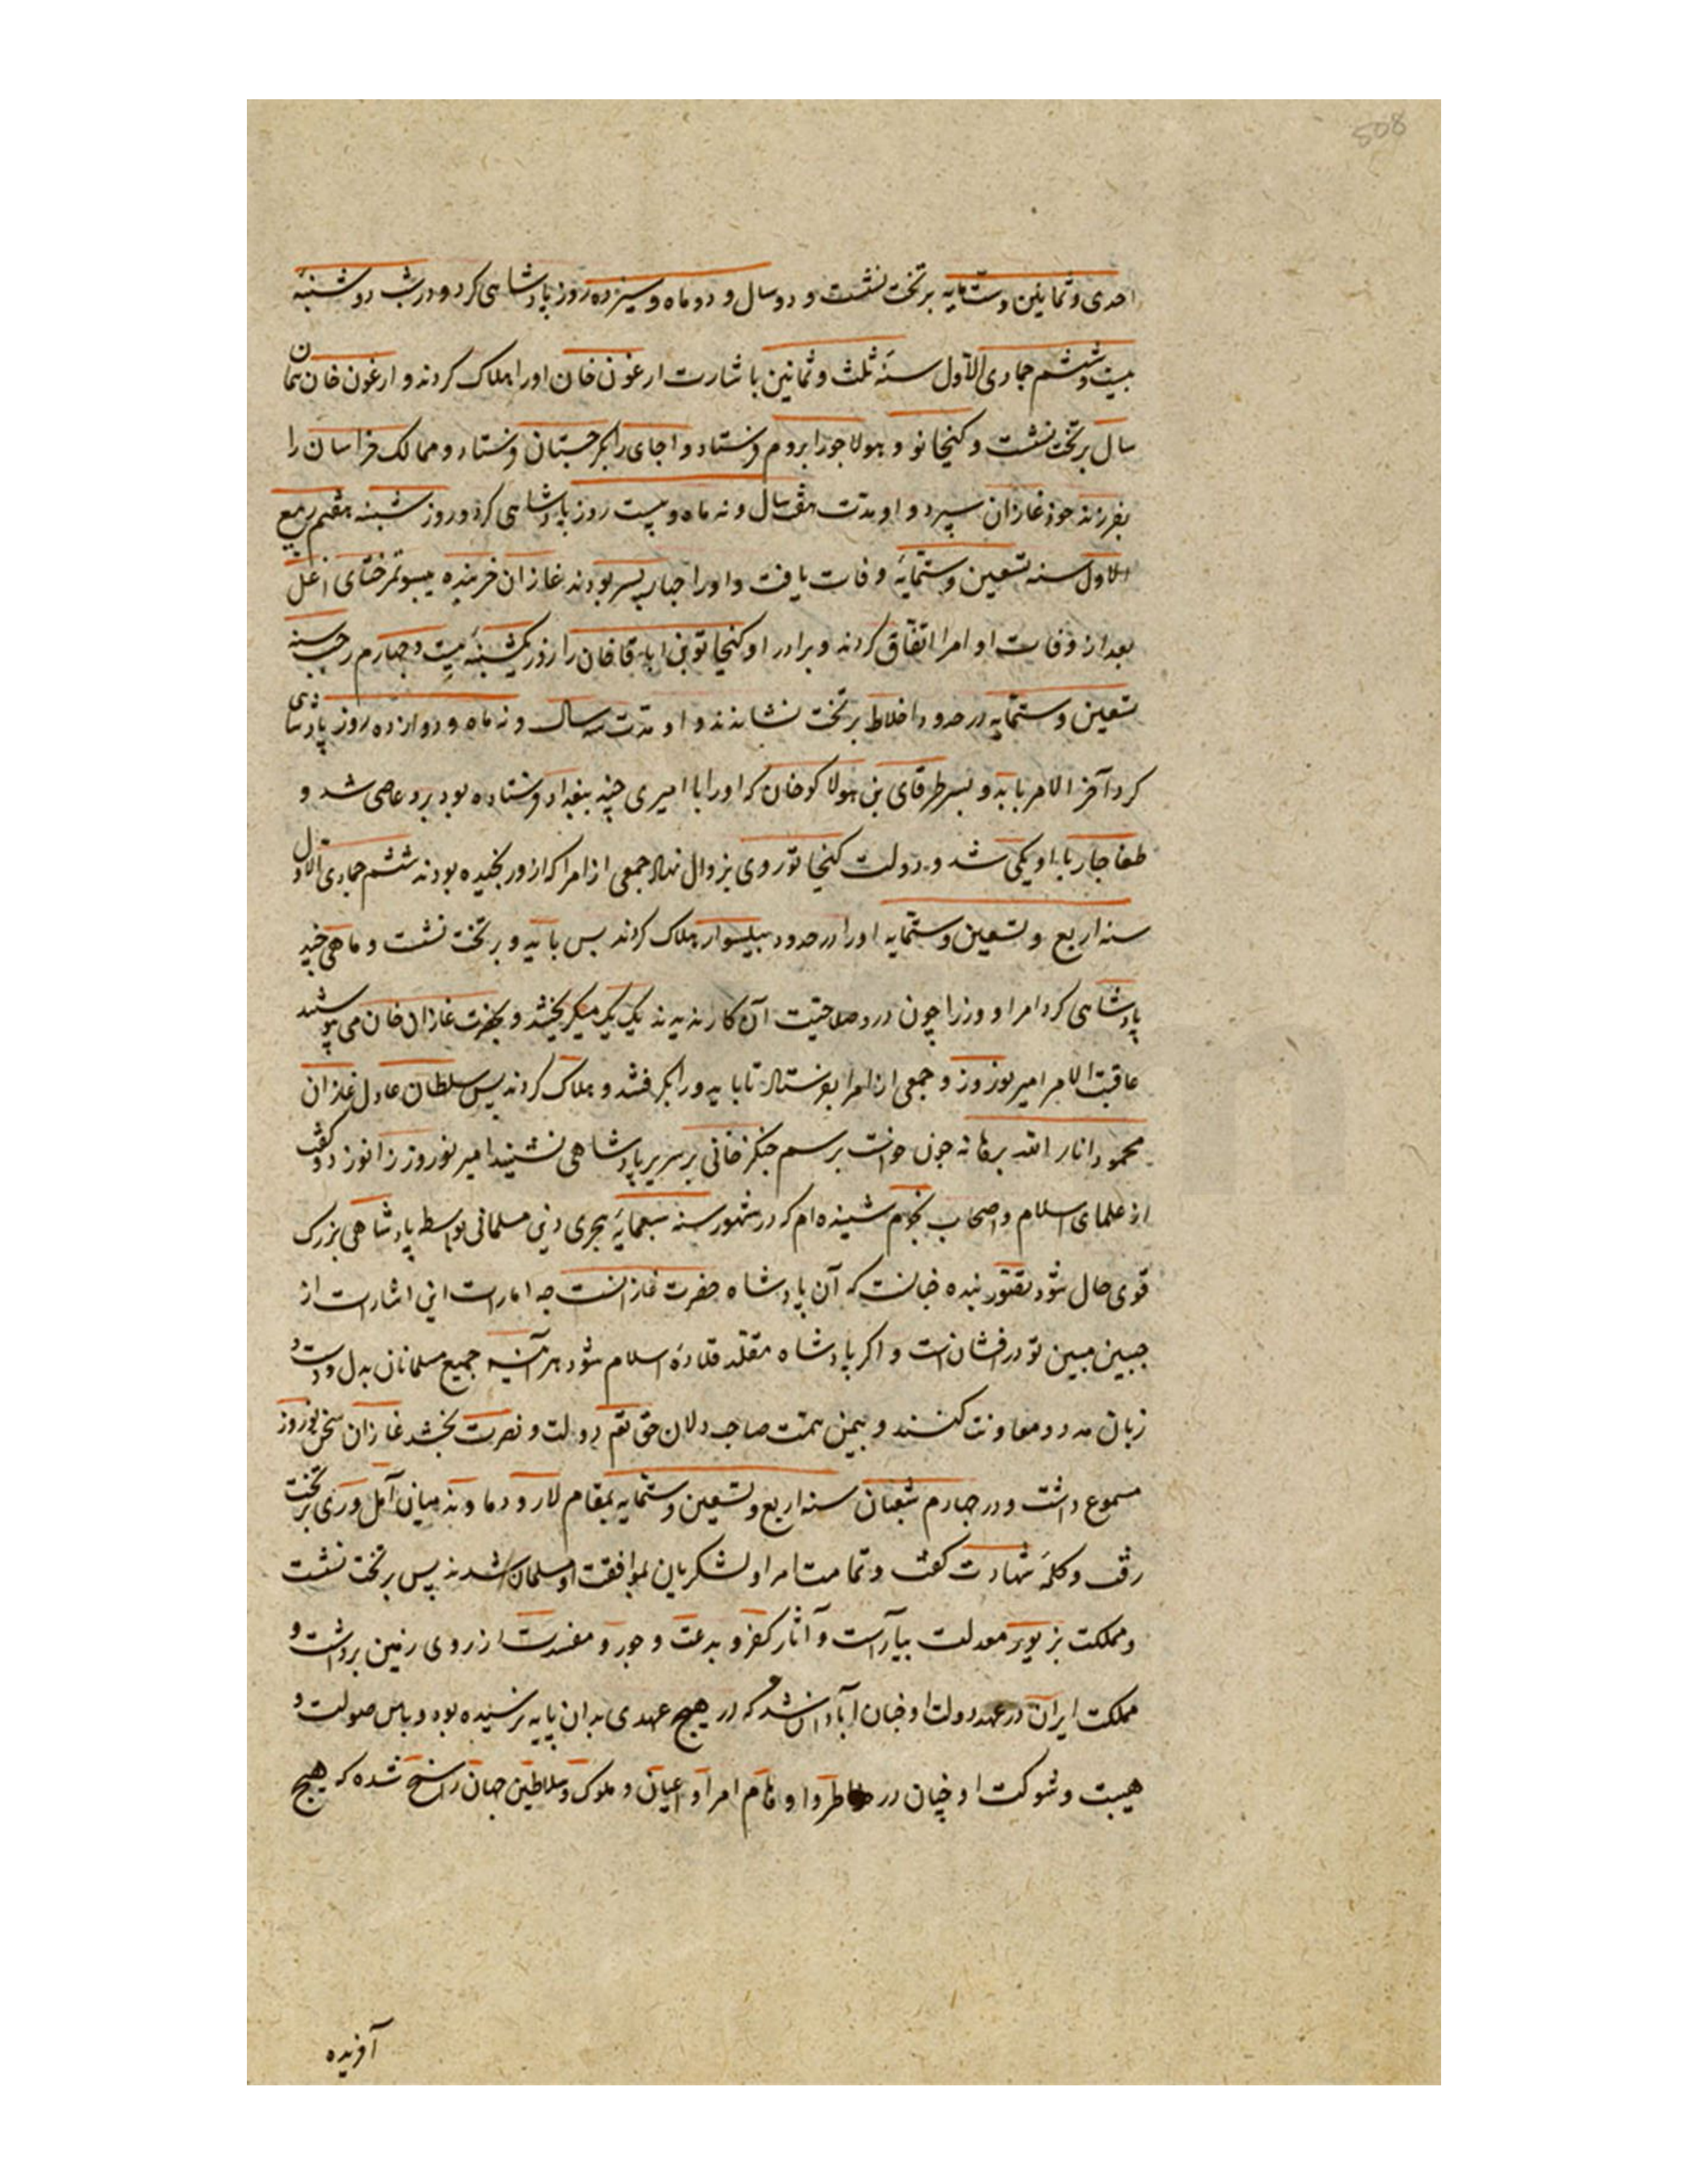 508
احدی و ثمانین و ستمایه بر تخت نشست و دو سال و دو ماه و سیزده روز پادشاهی کرد و در شب دوشنبه
بیست و ششم جمادی الاول سنه ثلث و ثمانین باشارت ارغون خان اورا هلاک کردند و ارغون خان همان
سال بر تخت نشست و کنجاتو و هولاجو را بروم فرستاد و اجای را بکرجستان فرستاد و ممالک خراسان را
بفرزند خود غازان سپرد و او مدت هفت سال و نه ماه و بیست روز پادشاهی کرد و روز شنبه هفتم ربیع
الاول سنه تسعین و ستمایه وفات یافت و اورا چهار پسر بودند غازان خربنده ییسوتمر ختای اغل
بعد از وفات او امرا اتفاق کردند و برادر او کنجاتو بن اباقا خان را روز یکشنبه بیست و چهارم رجب سنه
تسعین و ستمایه در حدود اخلاط بر تخت نشاندند و او مدت سه سال و نه ماه و دوازده روز پادشاهی
کرد آخر الامر بایدو پسر طرقای بن هولاکو خان که اورا با امیری چند ببغداد فرستاده بود برو عاصی شد و
طغاجار با او یکی شد و دولت کنجاتو روی بزوال نهاد جمعی از امرا که ازو رنجیده بودند ششم جمادی الاول
سنه اربع و تسعین و ستمایه اورا در حدود بیلسوار هلاک کردند پس بایدو بر تخت نشست و ماهی چند
پادشاهی کرد امرا و وزرا چون درو صلاحیت آن کار ندیدند یک یک میکریختند و بحضرت غازان خان می پیوستند
عاقبت الامر امیر نوروز و جمعی از امرا بفرستاد تا بایدو را بکرفتند و هلاک کردند پس سلطان عادل غازان
محمود انار الله برهانه چون خواست برسم جنکز خانی بر سریر پادشاهی نشیند امیر نوروز زانو زد و کفت
از علمای اسلام و اصحاب نجوم شنیده ام که در شهور سنه سبعمایه هجری دین مسلمانی بواسطه پادشاهی بزرک
قوی حال شود تصور بنده چنانست که آن پادشاه حضرت غازانست چه امارات این اشارات از
جبین مبین تو درفشانست و اکر پادشاه مقلد قلاده اسلام شود هر آینه جمیع مسلمانان بدل و دست و
زبان مدد و معاونت کنند و بیمن همت صاحب دلان حق تعم دولت و نصرت بخشد غازان سخن نوروز
مسموع داشت و در چهارم شعبان سنه اربع و تسعین و ستمایه بمقام لار و دماوند میان آمل و ری بر تخت
رفت و کلمه شهادت کفت و تمامت امرا و لشکریان بموافقت او مسلمان شدند پس بر تخت نشست
و مملکت بزیور معدلت بیآراست و آثار کفر و بدعت و جور و مفسدت از روی زمین برداشت و
مملکت ایران در عهد دولت او چنان آبادان شد که در هیچ عهدی بدان پایه نرسیده بود و باس صولت و
هیبت و شوکت او چنان در خاطر و اوهام امرا و اعیان و ملوک و سلاطین جهان راسخ شده که هیچ
آفریده